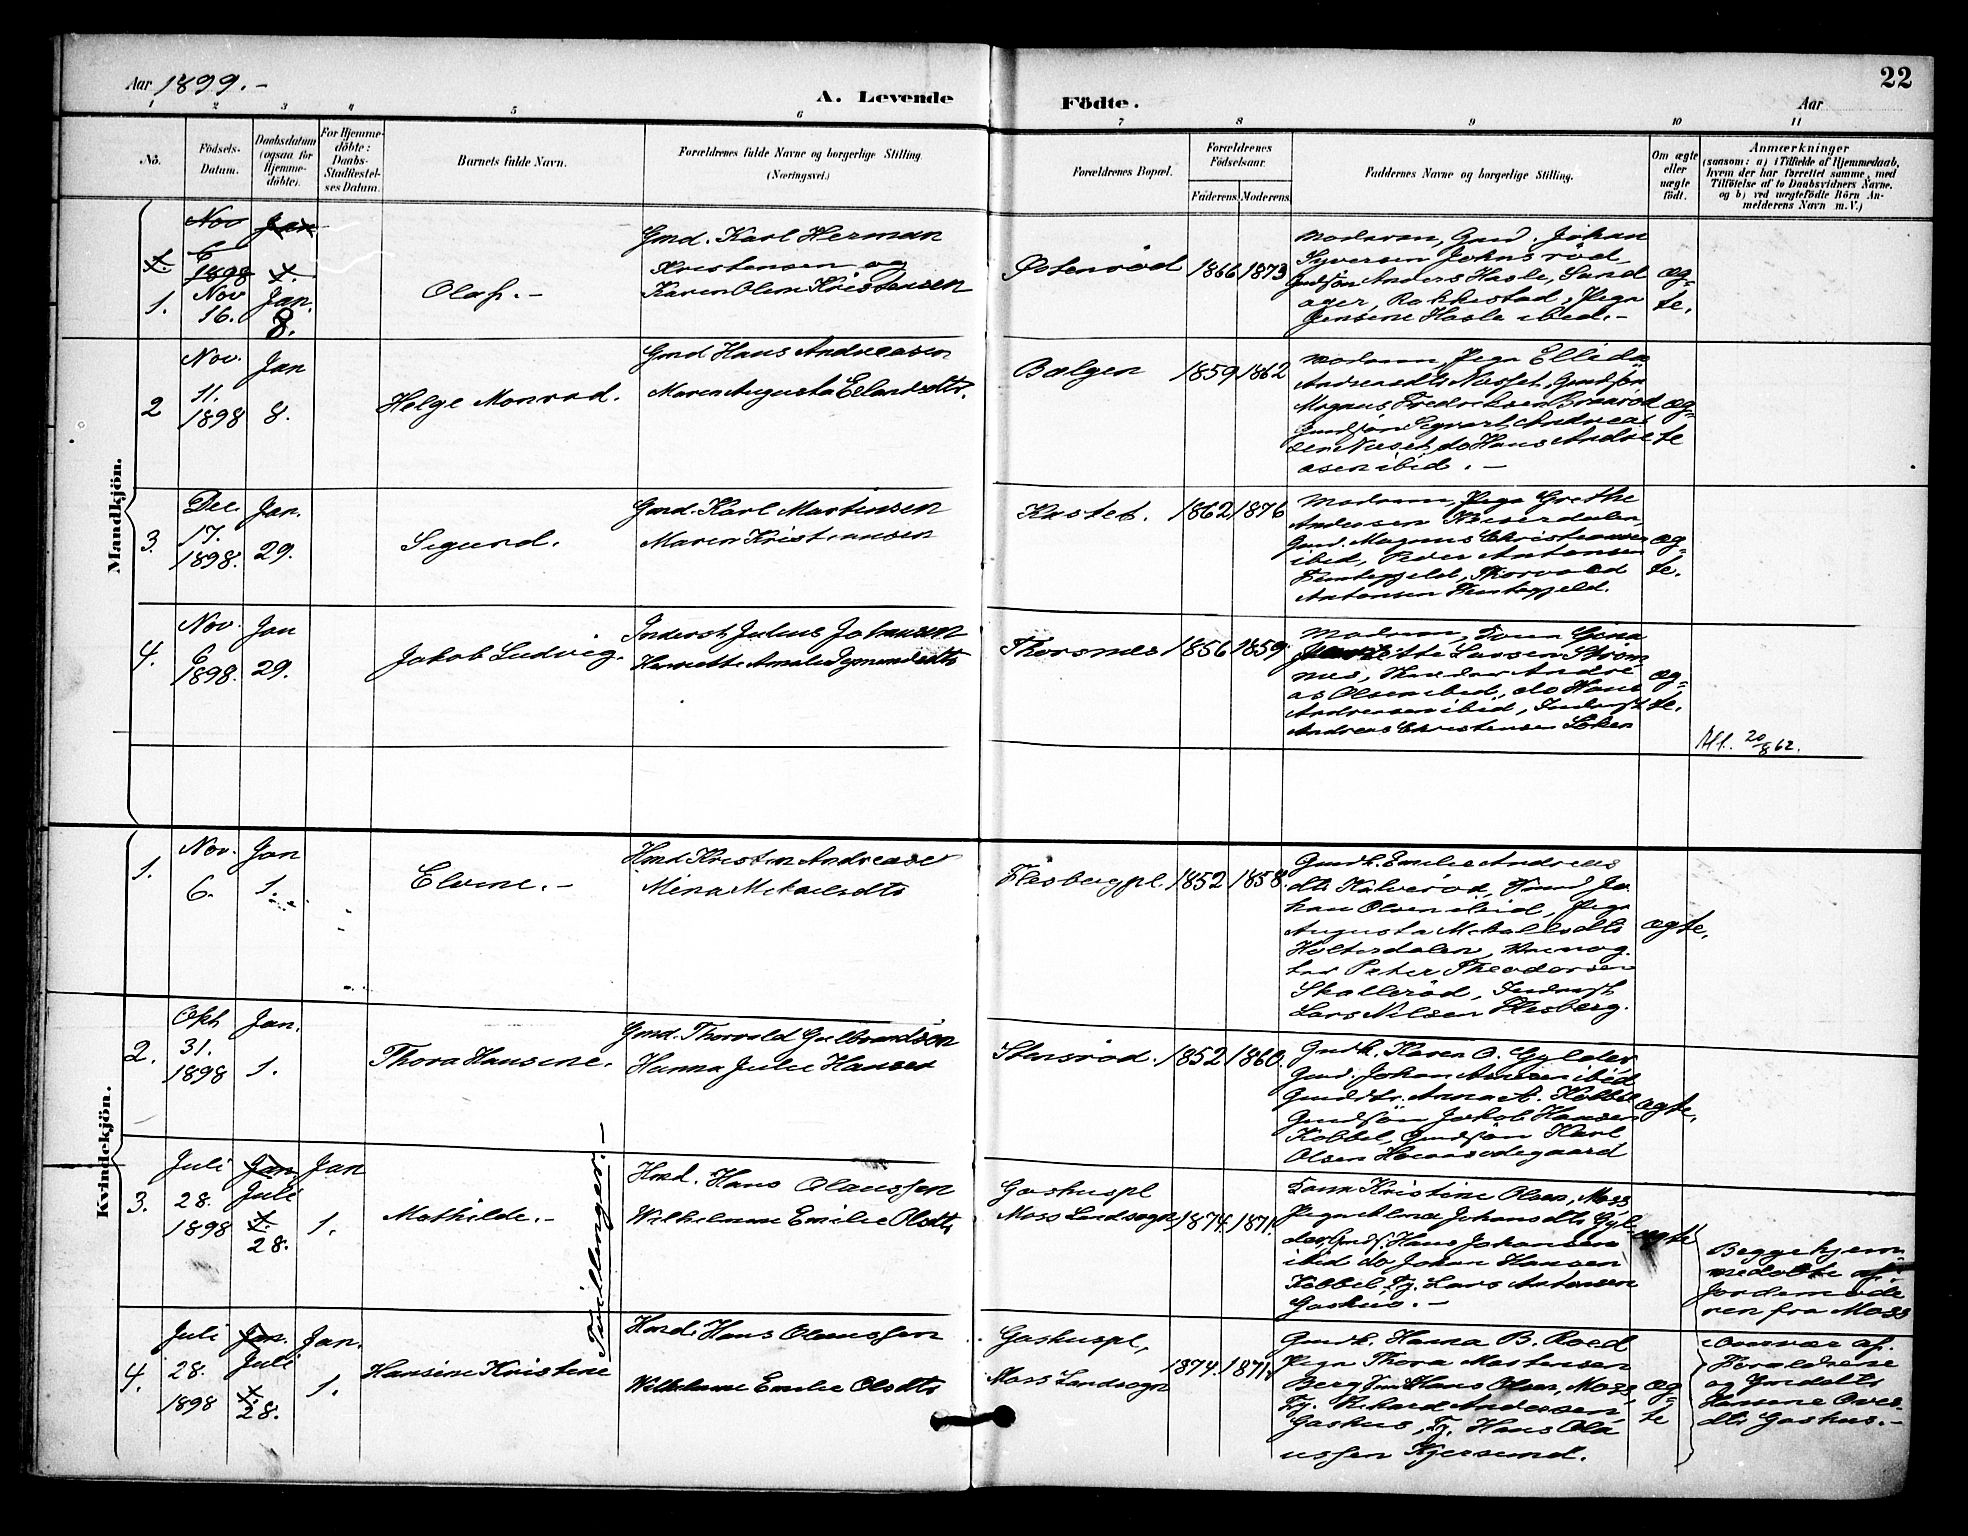 Aar 1899.-
A. Levende
Födte.
Aar
22
1 2 3 4 5 6 7 8 9 10 11
No.
Födsels-
Datum.
Daabsdatum
(ogsaa for
Hjemme-
döbte).
For Hjemme-
döbte:
Daabs-
Stadfæstel-
ses Datum.
Barnets fulde Navn.
Forældrenes fulde Navne og borgerlige Stilling.
(Næringsvei.)
Forældrenes Bopæl.
Forældrenes
Födselsaar.
Faderens. Moderens.
Faddernes Navne og borgerlige Stilling.
Om ægte
eller
uægte
födt.
Anmærkninger
(saasom: a) i Tilfælde af Hjemmedaab,
hvem der har forrettet samme, med
Tilföielse af to Daabsvidners Navne.
og b) ved uægtefödte Börn An-
melderens Navn m. V.)
Mandkjön.
1.
Nov
6
1898
Nov
16.
Jan
1.
Jan.
8.
Olaf.-
Gmd. Karl Herman
Kristensen og
Karen Oline Kristensen
Østenröd
1866
1873
Moderen, Gmd. Johan
Syversen Johnsröd,
Gmdsön Anders Hasle, Sand
ager, Rakkestad, Pige
Jensine Hasle ibid.-
æg-
te.
2
Nov.
11.
1898
Jan
8.
Helge Monrad.
Gmd Hans Andreasen
Maren Augusta Ellandsdtr.
Bolgen
1859
1862
Moderen, Pige Ellida
Andreasdtr Næsset, Gmdsön
Magnus Fredriksen
Gmdsön Sigvart Andrea
sen Næset, do Hans Andre
asen ibid.-
æg-
te
3.
Dec.
17.
1898.
Jan.
29.
Sigurd.
Gmd. Karl Martinsen
Maren Kristiansen
Kastet.
1862
1876
Moderen, Pige Grethe
Andersen
Gmd. Magnus Christiansen
ibid, Peder Antonsen
Thorvald
Antonsen
æg-
te.
4.
Nov.
6
1898.
Jan
29.
Jakob Ludvig.
Inderst Julius Johansen
Henriette Amalie Symundsdtr
Thorsnes
1856
1859.
Moderen, Gina
Larsen Ström-
nes, Andre
as Olsen ibid., do Hans
Andreasen ibid, Inderst
Andreas Christensen
æg-
te.
Att. 20/8 62.
Kvindekjön.
1.
Nov.
6.
Jan
1.
Elvine.-
Hmd. Kristen Andreasen
Mina Mikaelsdtr
Flesbergpl.
1852
1858.
Gmdk. Emilie Andreas
dtr Kalveröd, Gmd Jo
han Olsen ibid, Pige
Augusta Mikaelsdtr
Holterdalen,
Peter Theodorsen
Skalleröd, Inderst
Lars Nilsen Flesberg.
ægte.
2.
Okt
31.
1898
Jan.
1.
Thora Hansine.
Gmd. Thorvald Gulbrandsen
Hanna Julie Hansen
Stensröd.
1852
1860.
Gmdk. Karen O. Gylder,
Gmd. Johan ibid
Gmddtr. Anna A. Kobbel
Gmdsön Jakob Hansen
Kobbel, Gmdsön Karl
Olsen
ægte.
3.
Juli
28.
1898
Jan.
Juli
1.
28.
Jan
1.
Mathilde.-
Tvillinger.-
Hmd. Hans Olaussen
Wilhelmine Emilie Olsdtr
Gashuspl
Moss Landsogn
1874.
1871.
Kristine Olsen, Moss
Pige Alma Johansdtr Gyl-
der, Gmds. Hans Johansen
ibid do Johan Hansen
Kobbel, Fj. Lars Antonsen
Gashus.-
ægte
Begge hjem
medöbte af
Jordemode
ren fra Moss
4.
Juli
28.
1898
Jan.
Juli
1.
28.
Jan.
1.
Hansine Kristine
Hmd. Hans Olaussen
Wilhelmine Emilie Olsdtr
Gashuspl,
Moss Landsogn
1874.
1871.
Gmdk. Hanna B. Roed
Pige Thora Mortensen
Berg, Hans Olsen, Moss,
Fj. Rikard Andersen
Gashus, Fj. Hans Ola
ussen Kjersund.
æg
te
i Nærvær af
Forældrene
og
Hansine
dtr Gashus.-